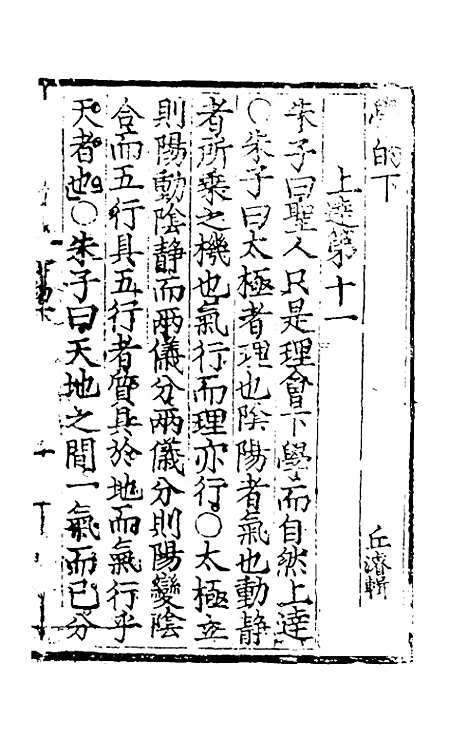 學的下
丘濬輯
上達第十一
朱子曰聖人只是理會下學而自然上達
○朱子曰太極者理也陰陽者氣也動靜
者所乘之機也氣行而理亦行○太極立
則陽動陰静而兩儀分兩儀分則陽變陰
合而五行具五行者質具於地而氣行乎
天者也○朱子曰天地之間一氣而已分